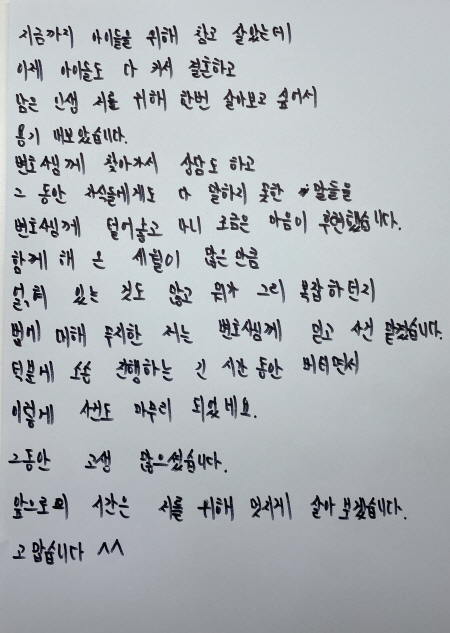 지금까지 아이들을 위해 참고 살았는데
이제 아이들도 다 커서 결혼하고
남은 인생 저를 위해 한번 살아보고 싶어서
용기 내보았습니다.
변호사님께 찾아가서 상담도 하고
그 동안 자식들에게도 다 말하지 못한 말들을
변호사님께 털어놓고 나니 조금은 마음이 후련했습니다.
함께 해 온 세월이 많은 만큼
얽혀 있는 것도 많고 뭐가 그리 복잡하던지
법에 대해 무지한 저는 변호사님께 믿고 사건 맡겼습니다.
덕분에 소송 진행하는 긴 시간 동안 버티면서
이렇게 사건도 마무리 되었네요.
그동안 고생 많으셨습니다.
앞으로의 시간은 저를 위해 멋지게 살아 보겠습니다.
고맙습니다 ^^